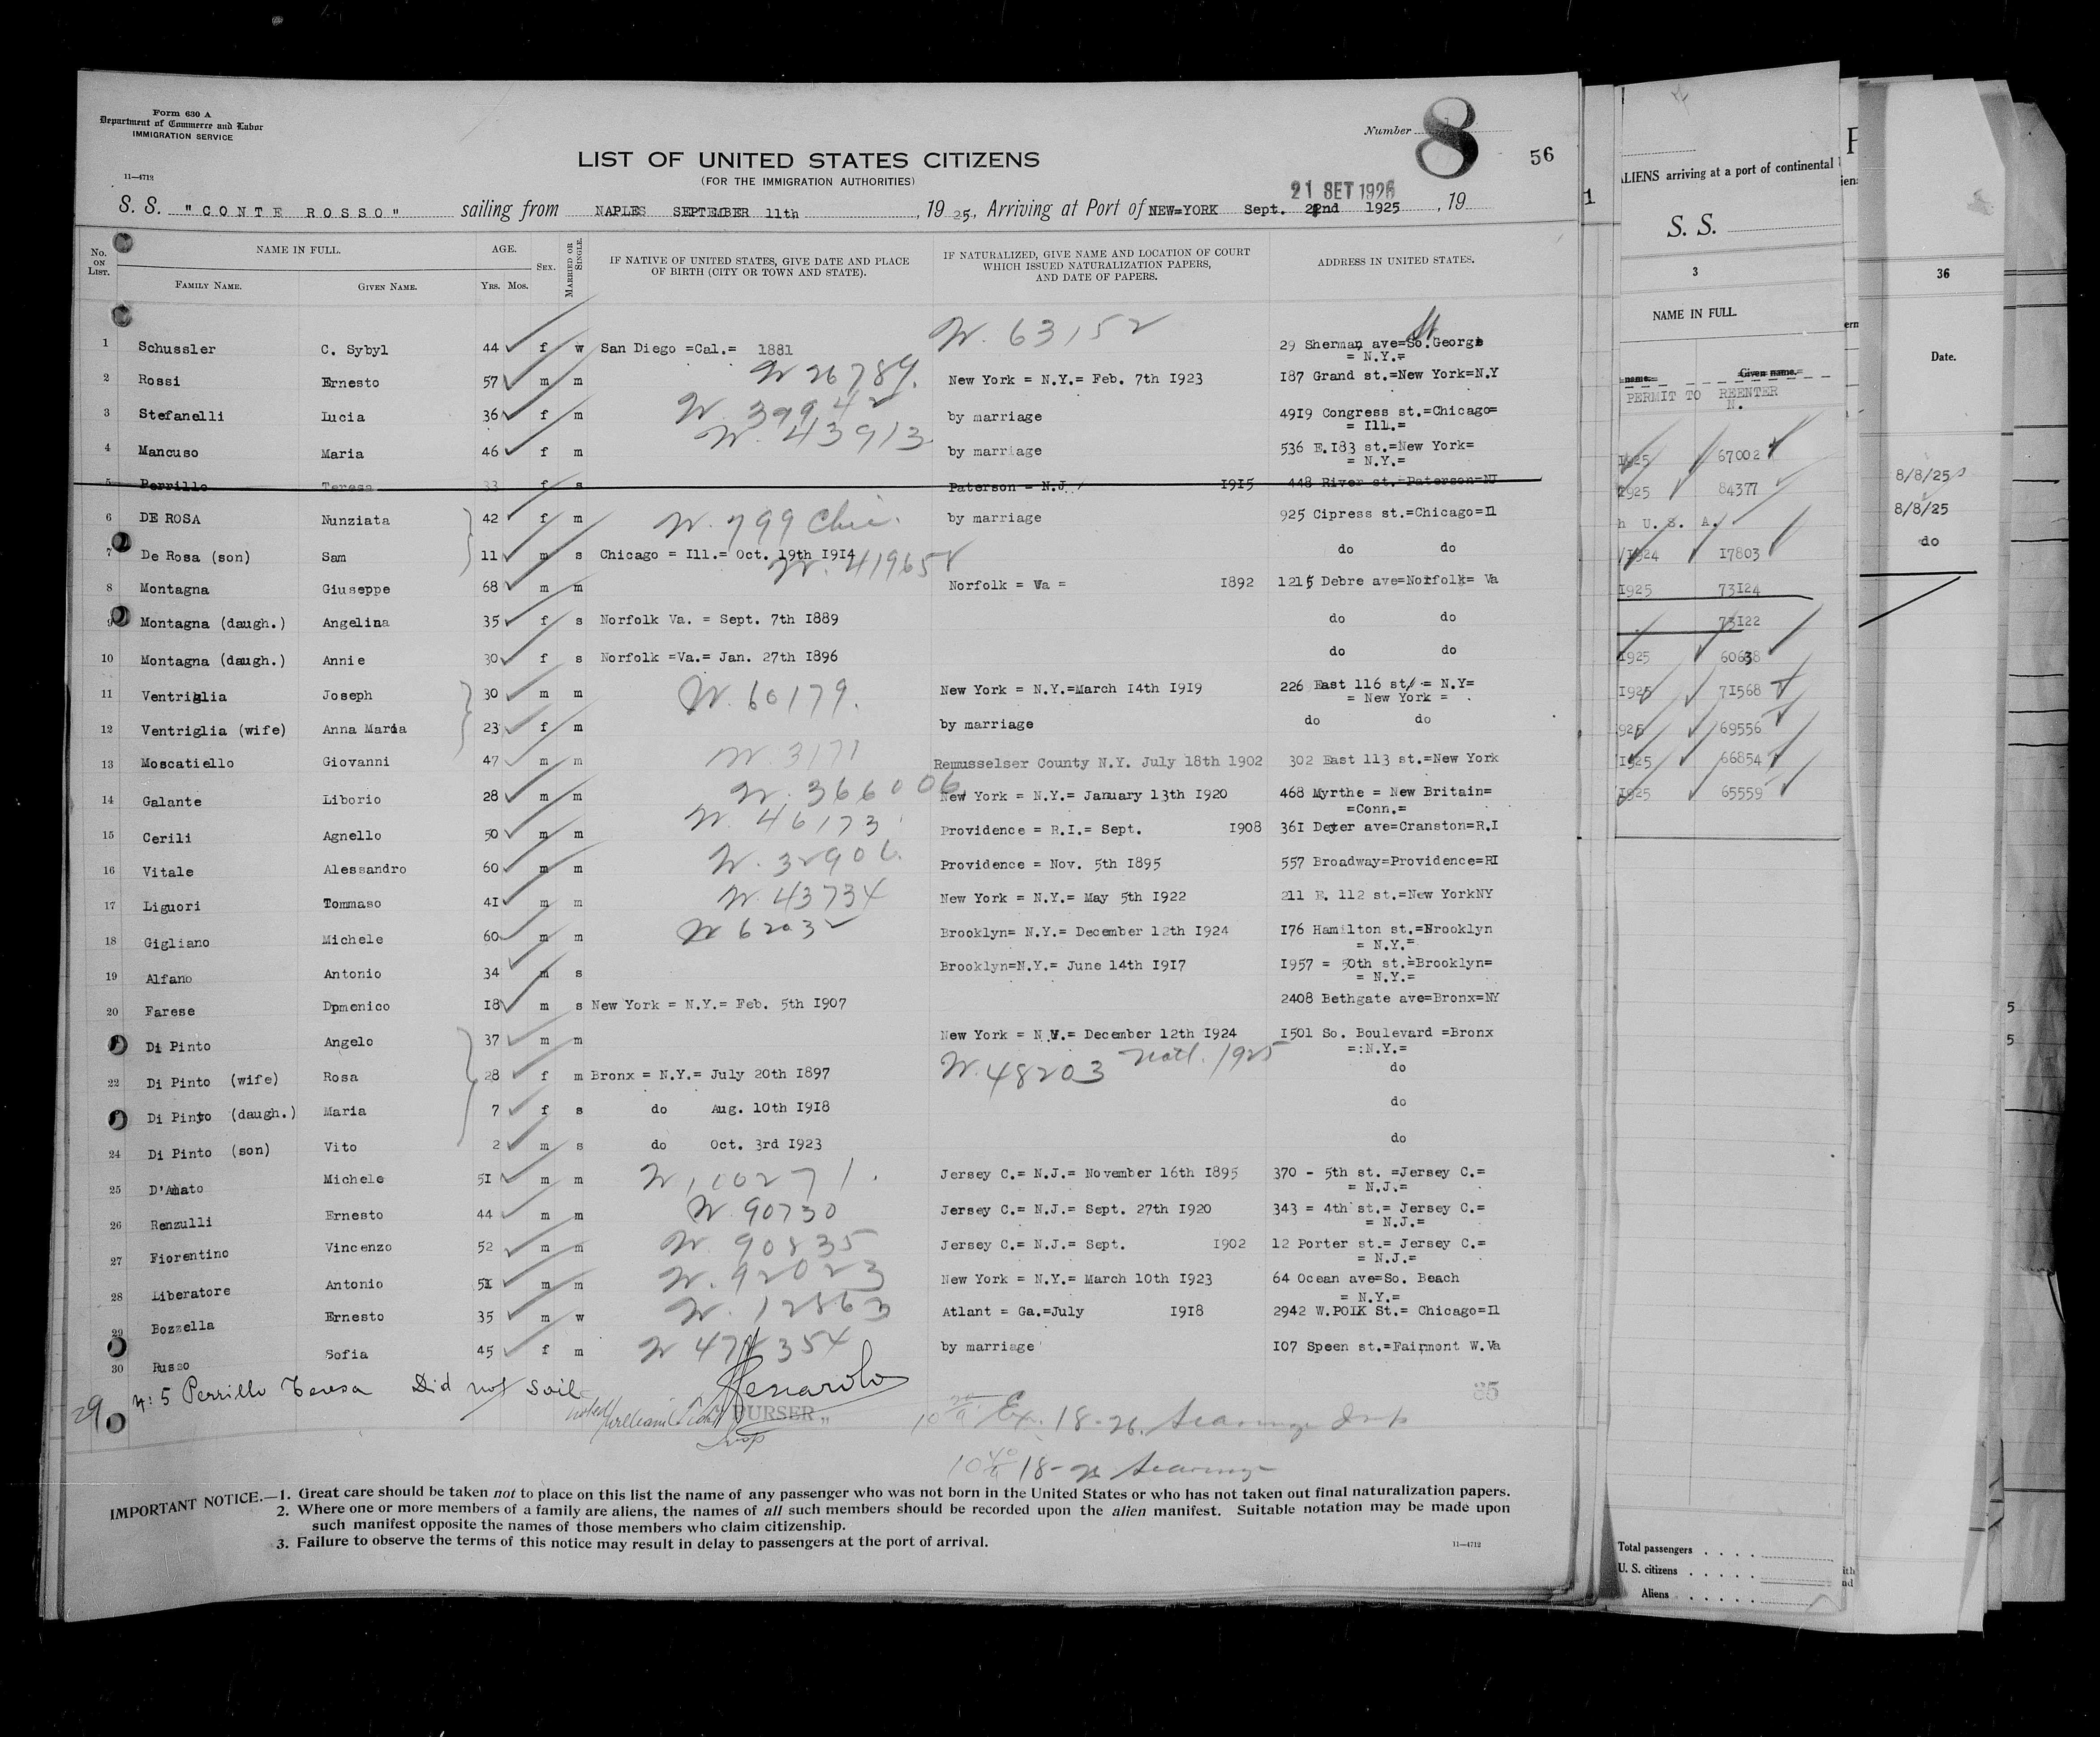 Form 630 A
Department of Commerce and Labor
IMMIGRATION SERVICE
11—4712
Number 8
56
LIST OF UNITED STATES CITIZENS
(FOR THE IMMIGRATION AUTHORITIES)
21 SET 1925
S. S. "CONTE ROSSO" sailing from NAPLES SEPTEMBER 11th, 1925, Arriving at Port of NEW=YORK Sept. 22nd 1925, 19
No. ON LIST. NAME IN FULL. FAMILY NAME. GIVEN NAME. AGE. YRS. MOS. SEX. MARRIED OR SINGLE. IF NATIVE OF UNITED STATES, GIVE DATE AND PLACE OF BIRTH (CITY OR TOWN AND STATE). IF NATURALIZED, GIVE NAME AND LOCATION OF COURT WHICH ISSUED NATURALIZATION PAPERS, AND DATE OF PAPERS. ADDRESS IN UNITED STATES.
1 Schussler C. Sybyl 44 f w San Diego =Cal.= 1881 N. 63152 29 Sherman ave=So.George
= N.Y.=
2 Rossi Ernesto 57 m m N 26789. New York = N.Y.= Feb. 7th I923 I87 Grand st.=New York=N.Y
3 Stefanelli Lucia 36 f m N. 39942 by marriage 49I9 Congress st.=Chicago=
= Ill.=
4 Mancuso Maria 46 f m N. 43913 by marriage 536 E.I83 st.=New York=
= N.Y.=
5 Perrillo Teresa 33 f s Paterson = N.J. I9I5 448 River st.=Paterson=NJ
6 DE ROSA Nunziata 42 f m N. 799 Chic. by marriage 925 Cipress st.=Chicago=Il
7 De Rosa (son) Sam 11 m s Chicago = Ill.= Oct. 19th I9I4 do do
N. 419652
8 Montagna Giuseppe 68 m m Norfolk = Va = I892 1215 Debre ave=Norfolk= Va
9 Montagna (daugh.) Angelina 35 f s Norfolk Va. = Sept. 7th I889 do do
10 Montagna (daugh.) Annie 30 f s Norfolk =Va.= Jan. 27th I896 do do
11 Ventriglia Joseph 30 m m N. 60179. New York = N.Y.=March I4th I9I9 226 East 116 st/ = N.Y=
= New York =
12 Ventriglia (wife) Anna Maria 23 f m by marriage do do
13 Moscatiello Giovanni 47 m m N. 3171 Remusselser County N.Y. July 18th 1902 302 East 113 st.=New York
14 Galante Liborio 28 m m N. 366006 New York = N.Y.= January I3th I920 468 Myrthe = New Britain=
=Conn.=
15 Cerili Agnello 50 m m N. 46173 Providence = R.I.= Sept. I908 36I Deyer ave=Cranston=R.I
16 Vitale Alessandro 60 m m N. 32906. Providence = Nov. 5th I895 557 Broadway=Providence=RI
17 Liguori Tommaso 4I m m N. 43734 New York = N.Y.= May 5th I922 211 E. 112 st.=New YorkNY
18 Gigliano Michele 60 m m N 62032 Brooklyn= N.Y.= December 12th I924 I76 Hamilton st.=Brooklyn
= N.Y.=
19 Alfano Antonio 34 m s Brooklyn=N.Y.= June 14th I9I7 I957 = 50th st.=Brooklyn=
= N.Y.=
20 Farese Dpmenico I8 m s New York = N.Y.= Feb. 5th I907 2408 Bethgate ave=Bronx=NY
Di Pinto Angelo 37 m m New York = N.Y.= December 12th I924 I501 So. Boulevard =Bronx
=:N.Y.=
N. 48203 Natl. 1925
22 Di Pinto (wife) Rosa 28 f m Bronx = N.Y.= July 20th I897 do
Di Pinto (daugh.) Maria 7 f s do Aug. 10th I9I8 do
24 Di Pinto (son) Vito 2 m s do Oct. 3rd I923 do
25 D'Amato Michele 5I m m N. 10271. Jersey C.= N.J.= November 16th I895 370 - 5th st. =Jersey C.=
= N.J.=
26 Renzulli Ernesto 44 m m N. 90730 Jersey C.= N.J.= Sept. 27th I920 343 = 4th st.= Jersey C.=
= N.J.=
27 Fiorentino Vincenzo 52 m m N. 90835 Jersey C.= N.J.= Sept. I902 12 Porter st.= Jersey C.=
= N.J.=
28 Liberatore Antonio 51 m m N. 92023 New York = N.Y.= March 10th I923 64 Ocean ave=So. Beach
= N.Y.=
29 Bozzella Ernesto 35 m w N. 12863 Atlant = Ga.=July I9I8 2942 W.POIK St.= Chicago=Il
30 Russo Sofia 45 f m N 474354 by marriage I07 Speen st.=Fairmont W.Va
29 N: 5 Perrillo Teresa Did not sail
noted
PURSER „
Ex. 18-26.
85
IMPORTANT NOTICE.—1. Great care should be taken not to place on this list the name of any passenger who was not born in the United States or who has not taken out final naturalization papers.
2. Where one or more members of a family are aliens, the names of all such members should be recorded upon the alien manifest. Suitable notation may be made upon
such manifest opposite the names of those members who claim citizenship.
3. Failure to observe the terms of this notice may result in delay to passengers at the port of arrival.
11—4712
1
ALIENS arriving at a port of continental
S. S.
3
NAME IN FULL.
name.= Given name.=
PERMIT TO REENTER
N.
I925 67002
I925 84377
h U. S. A.
/I924 I7803
I925 73I24
73I22
I925 60638
I925 71568
925 69556
I925 66854
I925 65559
Total passengers . . . .
U. S. citizens . . . . .
Aliens . . . . .
36
Date.
8/8/25
8/8/25
do
5
5